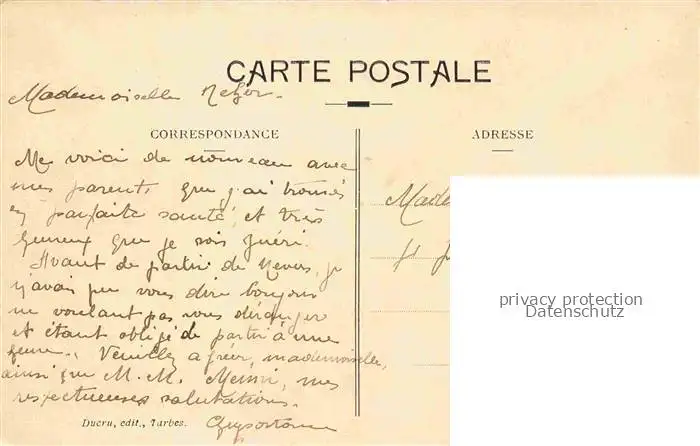 CARTE POSTALE
Mademoiselle
CORRESPONDANCE
Me voici de nouveau avec
mes parents que j'ai trouvés
en parfaite santé, et très
heureux que je sois guéri.
Avant de partir de Nevers, je
n'avais pu vous dire bonjour
ne voulant pas vous déranger
et étant obligé de partir à une
heure. Veuillez agréer, mademoiselle,
ainsi que M. M. mes
respectueuses salutations.
Ducru, edit., Tarbes.
ADRESSE
privacy protection
Datenschutz